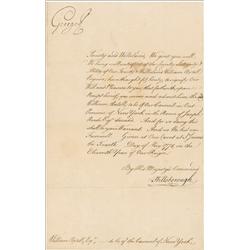 George R
Trusty and Welbeloved, We greet you well
We being well satisfied of the Loyalty Integrity &
Ability of Our Trusty & Welbeloved William Axtell
Esquire, have thought fit hereby to signify Our
Will and Pleasure to you that forthwith upon
Receipt hereof you swear and admit him the said
William Axtell to be of Our Council in Our
Province of New York in the Room of Joseph
Reade Esqr. deceased. And for so doing this
shall be your Warrant. And so We bid you
Farewell. Given at Our Court at St. James's
the Fourth Day of 1771 in the
Eleventh Year of Our Reign.
By His Majesty's Command
Hillsborough
William Axtell, Esqr. to be of the Council of New York.